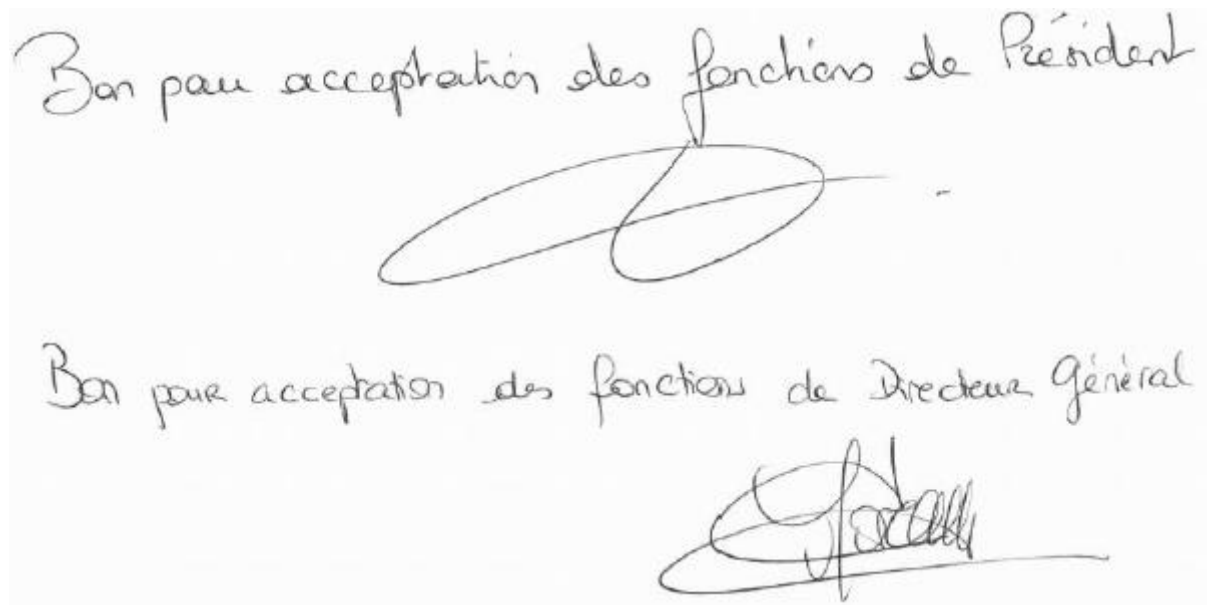 Bon pour acceptation des fonctions de Président
Bon pour acceptation des fonctions de Directeur Général